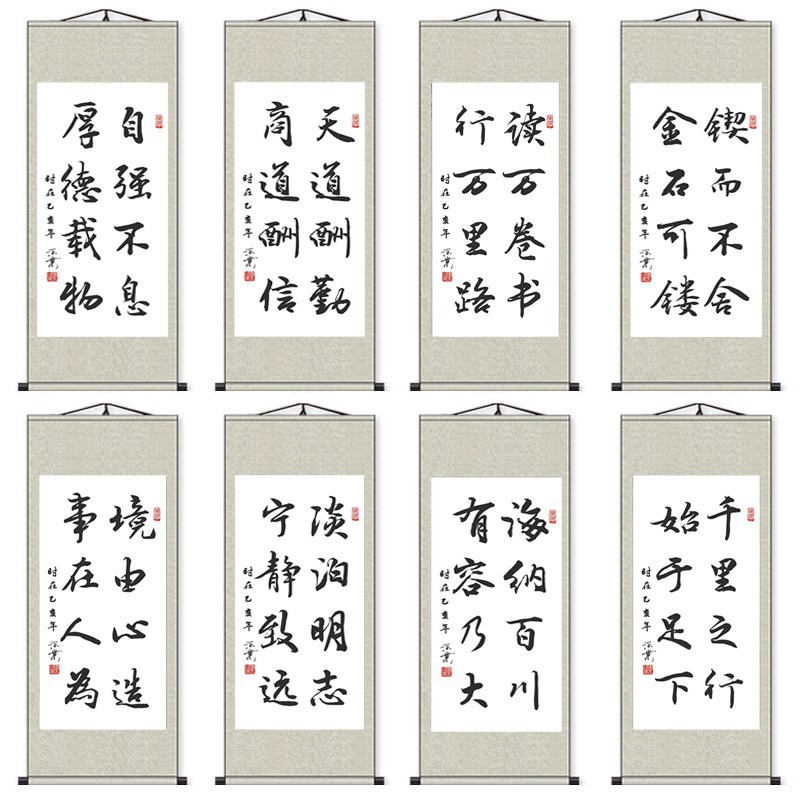 自强不息
厚德载物
时在乙亥年
天道酬勤
商道酬信
时在乙亥年
读万卷书
行万里路
时在乙亥年
锲而不舍
金石可镂
境由心造
事在人为
时在乙亥年
淡泊明志
宁静致远
时在乙亥年
海纳百川
有容乃大
时在乙亥年
千里之行
始于足下